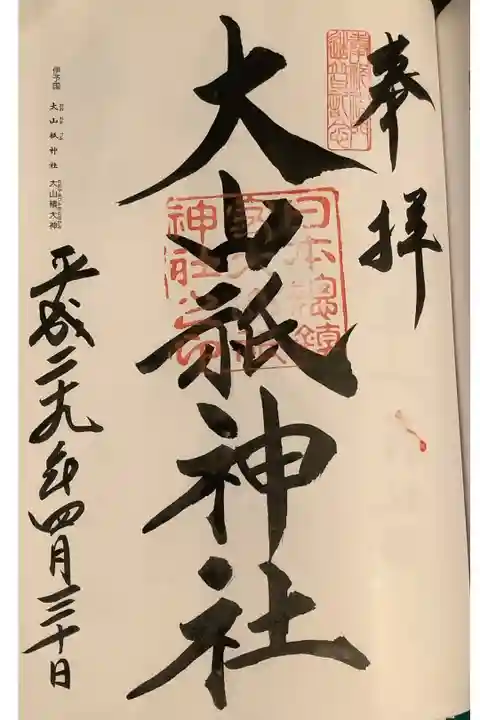 奉拝
大山祇神社
日本總鎮
神社
伊予国 大山祇神社 大山積大神
平成二十九年四月三十日